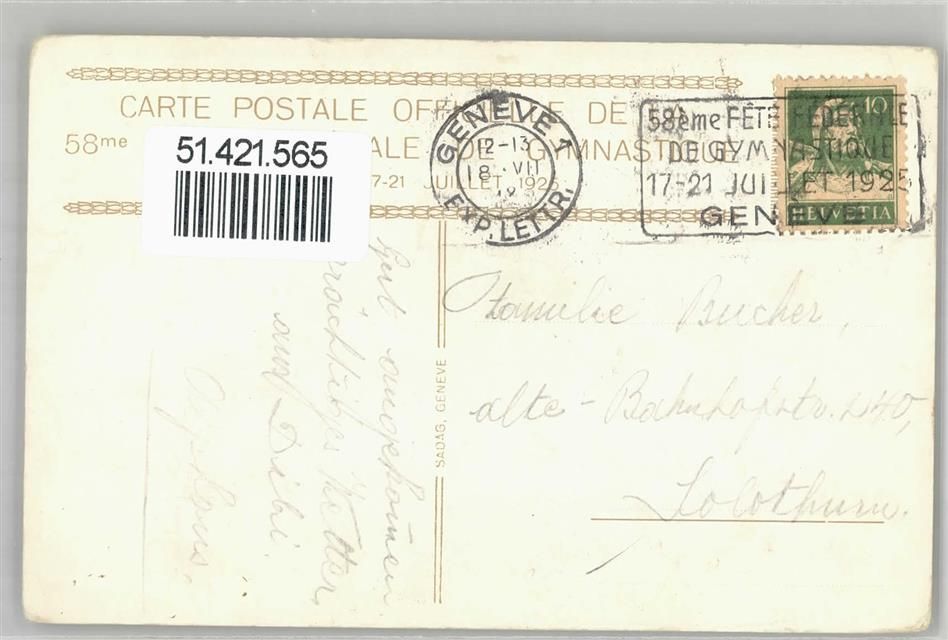 CARTE POSTALE OFFICIELLE DE LA
58me ALE DE GYMNASTIQUE
17-21 JUILLET 1925
51.421.565
GENÈVE 1
12-13
18. VII
EXP. LETTR.
58ème FÊTE FÉDÉRALE
DE GYMNASTIQUE
17-21 JUILLET 1925
GENÈVE
10
HELVETIA
Gut angekommen
prächtiges Wetter,
auf
SADAG, GENEVE
Familie Bucher,
alte - Bahnhofstr. 240,
Solothurn.